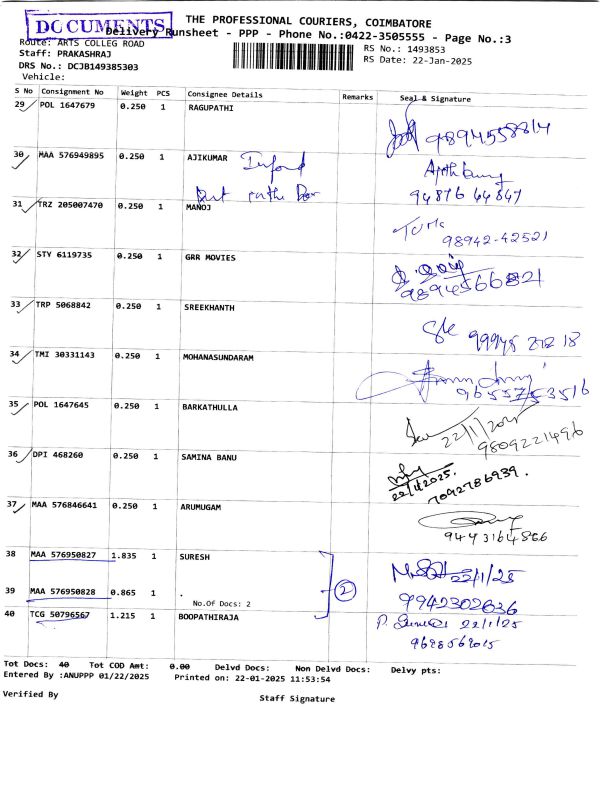 THE PROFESSIONAL COURIERS, COIMBATORE
DOCUMENTS
Delivery Runsheet - PPP - Phone No.:0422-3505555 - Page No.:3
Route: ARTS COLLEG ROAD
RS No.: 1493853
Staff: PRAKASHRAJ
RS Date: 22-Jan-2025
DRS No.: DCJB149385303
Vehicle:
S No Consignment No Weight PCS Consignee Details Remarks Seal & Signature
29 POL 1647679 0.250 1 RAGUPATHI
9894558814
30 MAA 576949895 0.250 1 AJIKUMAR
94876 44847
31 TRZ 205007470 0.250 1 MANOJ
98942-42521
32 STY 6119735 0.250 1 GRR MOVIES
9894566821
33 TRP 5068842 0.250 1 SREEKHANTH
34 TMI 30331143 0.250 1 MOHANASUNDARAM
9655753516
35 POL 1647645 0.250 1 BARKATHULLA
22/1/2025
9809221496
36 DPI 468260 0.250 1 SAMINA BANU
22/1/2025.
7092786939.
37 MAA 576846641 0.250 1 ARUMUGAM
9443164866
38 MAA 576950827 1.835 1 SURESH
22/1/25
39 MAA 576950828 0.865 1 .
No.Of Docs: 2
2
9942302636
40 TCG 50796567 1.215 1 BOOPATHIRAJA
22/1/25
9628562015
Tot Docs: 40 Tot COD Amt: 0.00 Delvd Docs: Non Delvd Docs: Delvy pts:
Entered By :ANUPPP 01/22/2025 Printed on: 22-01-2025 11:53:54
Verified By
Staff Signature